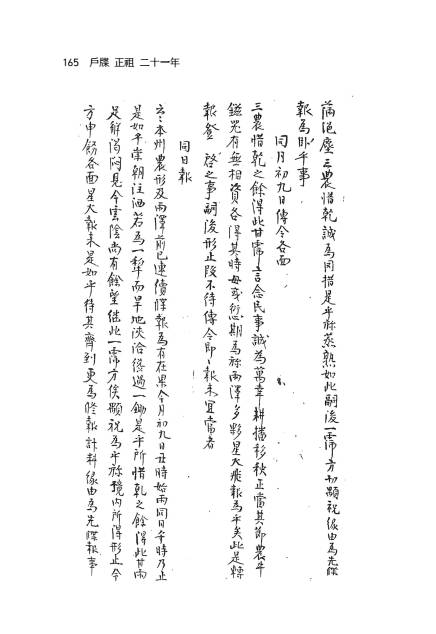 165 戶牒 正祖 二十一年
蒲浥塵三農惜乾誠爲同措是乎㫆蒸熟如此嗣後一霈方切顒祝緣由爲先牒
報爲臥乎事
同月初九日傳令各面
三農惜乾之餘得此甘霈言念民事誠爲萬幸耕播移秧正當其節農牛
鎡器有無相資各得其時毋或愆期爲㫆雨澤多夥星火飛報爲乎矣此是轉
報營 啓之事嗣後形止段不待傳令卽卽報來宜當者
同日報
云云本州農形及雨澤前已連續牒報爲有在果今月初九日丑時始雨同日午時乃止
是如乎崇朝注洒若爲一犂而旱地浹洽繞過一鋤是乎所惜乾之餘得此甘雨
足解渴悶見今雲陰尚有餘望繼此一霈方俟顒祝爲乎㫆境內所得形止今
方申飭各面星火報來是如乎待其齊到更爲修報計料緣由爲先牒報事